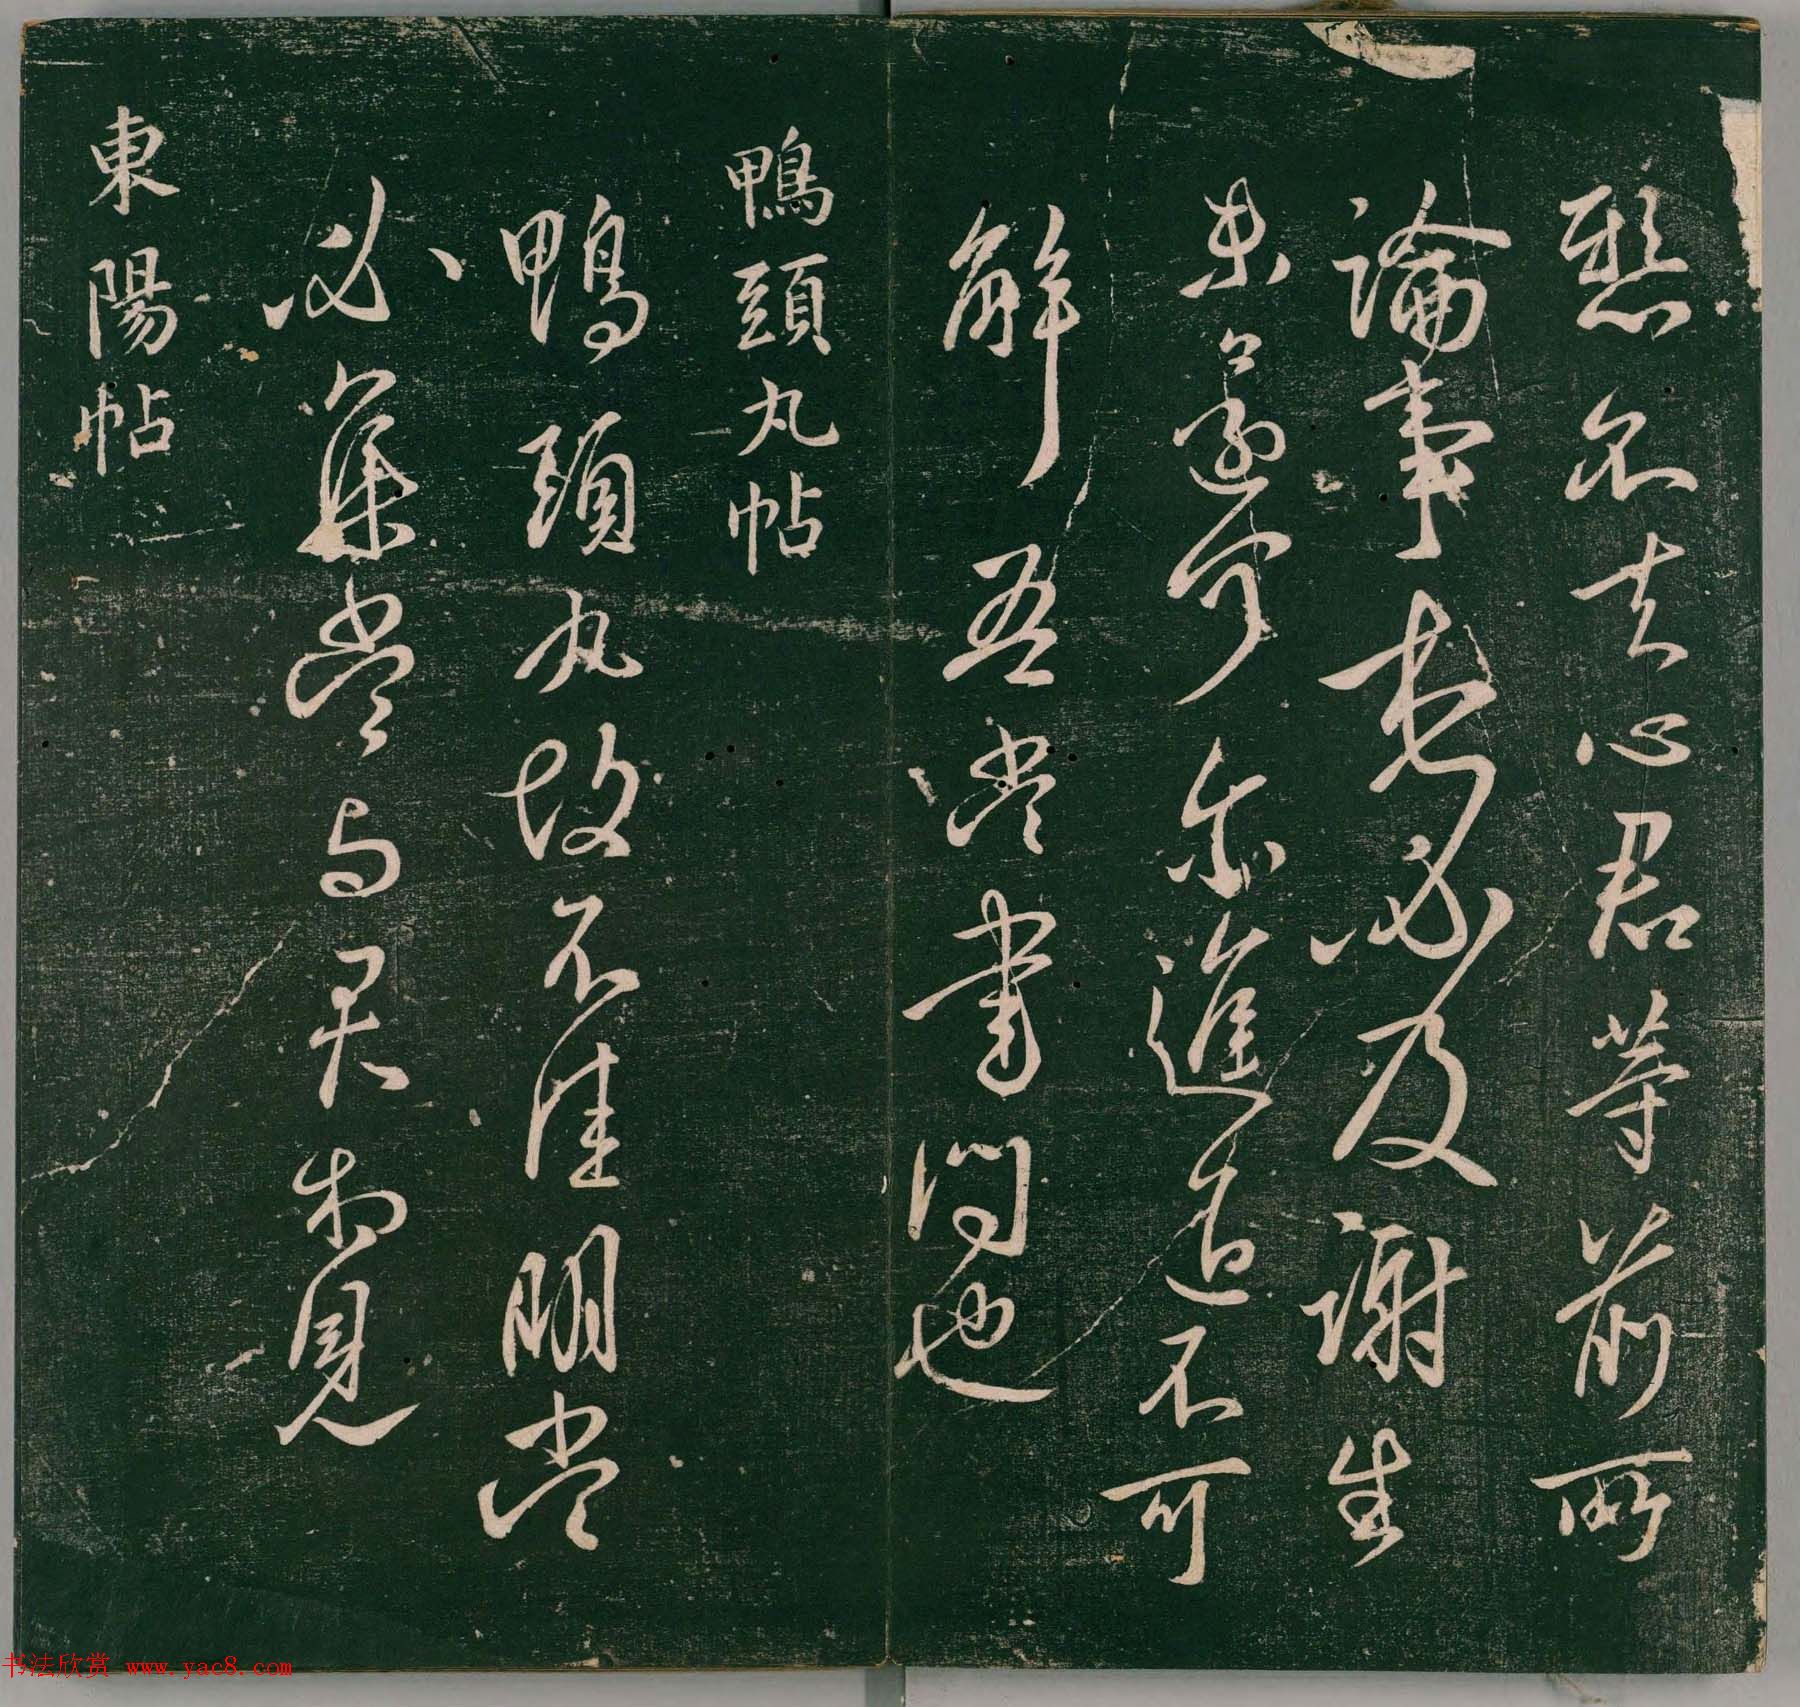 不去心君等前所
論事想必及謝生
未還可尔進退不可
解吾當書問也
鴨頭丸帖
鴨頭丸故不佳明當
必集當与君相見
東陽帖
书法欣赏 www.yac8.com